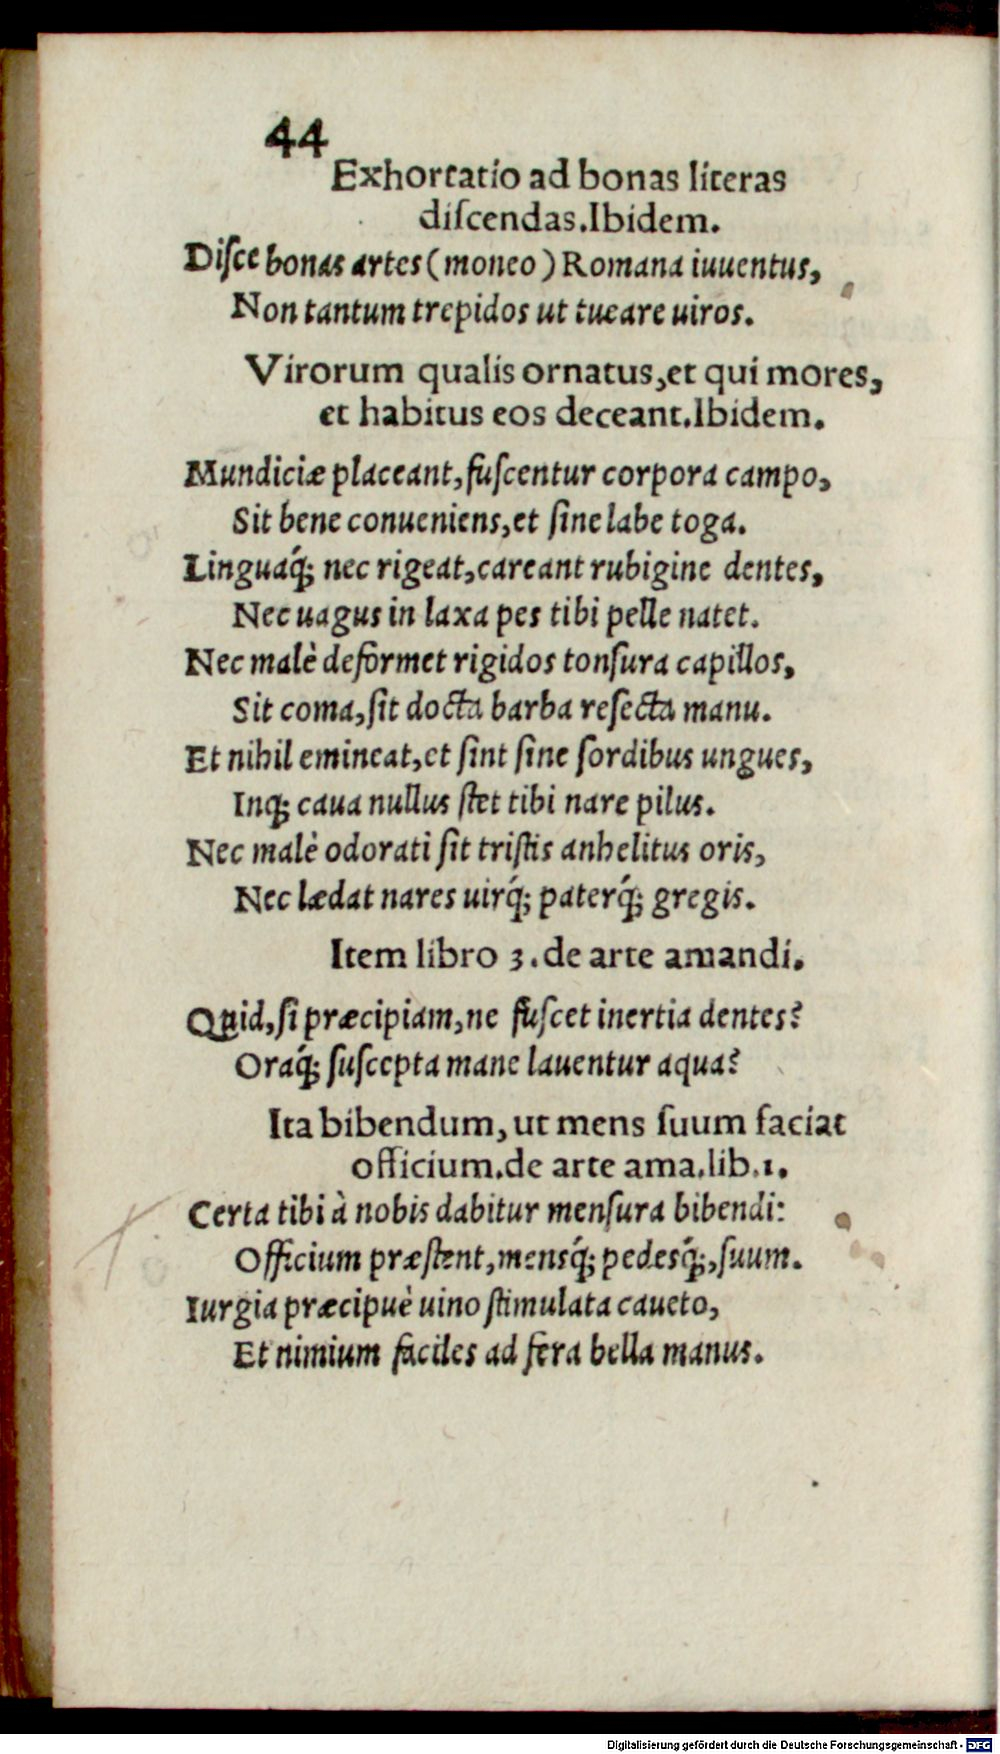 44
Exhortatio ad bonas literas
diſcendas.Ibidem.
Diſce bonas artes (moneo) Romana iuuentus,
Non tantum trepidos ut tueare uiros.
Virorum qualis ornatus,et qui mores,
et habitus eos deceant.Ibidem.
Mundiciæ placeant, fuſcentur corpora campo,
Sit bene conueniens,et ſine labe toga.
Linguaq́; nec rigeat,careant rubigine dentes,
Nec uagus in laxa pes tibi pelle natet.
Nec malè deformet rigidos tonſura capillos,
Sit coma,ſit docta barba reſecta manu.
Et nihil emineat,et ſint ſine ſordibus ungues,
Inq; caua nullus ſtet tibi nare pilus.
Nec malè odorati ſit triſtis anhelitus oris,
Nec lædat nares uirq́; paterq́; gregis.
Item libro 3.de arte amandi.
Quid,ſi præcipiam,ne fuſcet inertia dentes?
Oraq́; ſuſcepta mane lauentur aqua?
Ita bibendum, ut mens ſuum faciat
officium.de arte ama.lib.1.
Certa tibi à nobis dabitur menſura bibendi:
Officium præſtent,mensq́; pedesq́;,ſuum.
Iurgia præcipuè uino ſtimulata caueto,
Et nimium faciles ad fera bella manus.
Digitalisierung gefördert durch die Deutsche Forschungsgemeinschaft - DFG